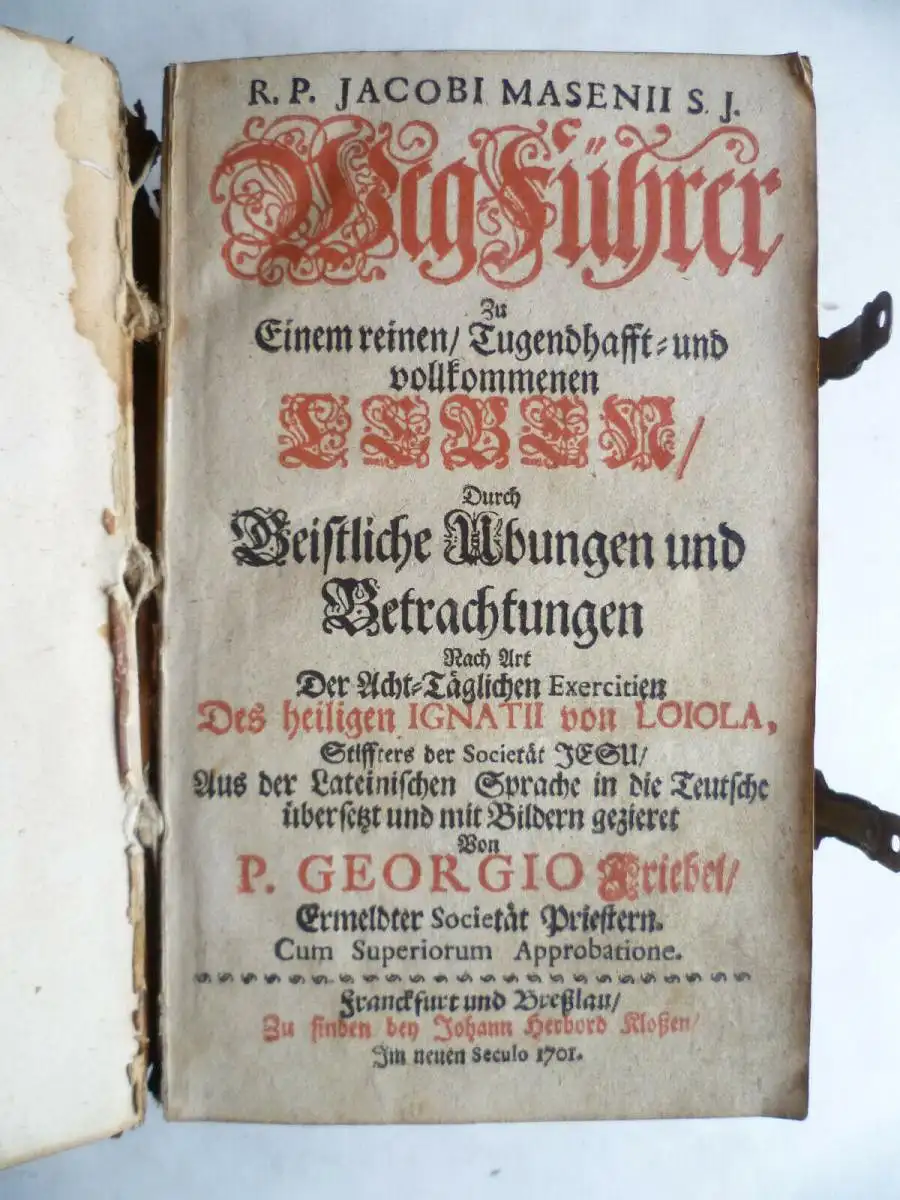 R. P. JACOBI MASENII S. J.
WegFührer
Zu
Einem reinen/ Tugendhafft-und
vollkommenen
LEBEN/
Durch
Geistliche Ubungen und
Betrachtungen
Nach Art
Der Acht-Täglichen Exercitien
Des heiligen IGNATII von LOIOLA,
Stiffters der Societät JESU/
Aus der Lateinischen Sprache in die Teutsche
übersetzt und mit Bildern gezieret
Von
P. GEORGIO Friebel/
Ermeldter Societät Priestern.
Cum Superiorum Approbatione.
Franckfurt und Breßlau/
Zu finden bey Johann Herbord Kloßen/
Im neuen Seculo 1701.